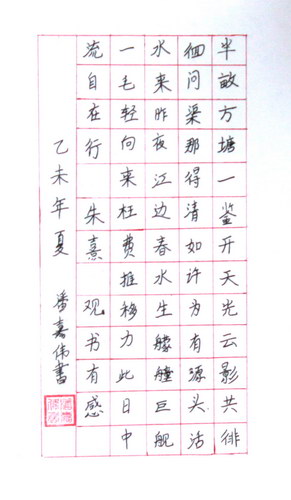 半畝方塘一鉴开天光云影共徘
徊问渠那得清如许为有源头活
水来昨夜江边春水生艨艟巨舰
一毛轻向来枉费推移力此日中
流自在行 朱熹 观书有感
乙未年夏 潘嘉伟書